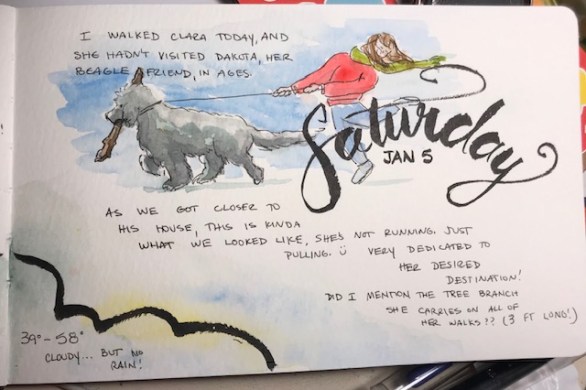 I WALKED CLARA TODAY, AND
SHE HADN'T VISITED DAKOTA, HER
BEAGLE FRIEND, IN AGES.
Saturday
JAN 5
AS WE GOT CLOSER TO
HIS HOUSE, THIS IS KINDA
WHAT WE LOOKED LIKE, SHE'S NOT RUNNING. JUST
PULLING. Ü VERY DEDICATED TO
HER DESIRED
DESTINATION!
DID I MENTION THE TREE BRANCH
SHE CARRIES ON ALL OF
HER WALKS?? (3 FT LONG!)
39° - 58°
CLOUDY... BUT NO
RAIN!